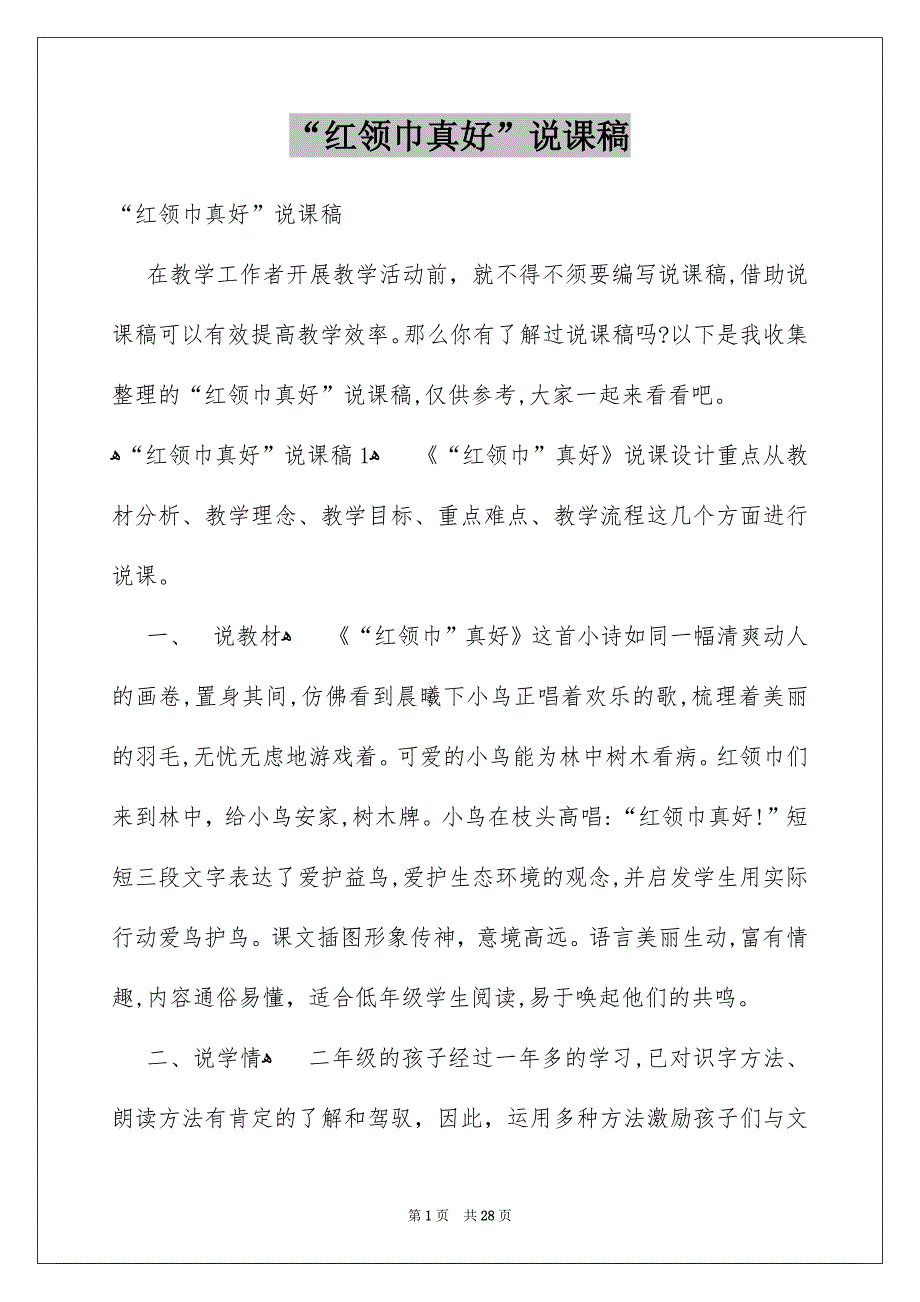 “红领巾真好”说课稿
“红领巾真好”说课稿
在教学工作者开展教学活动前，就不得不须要编写说课稿,借助说
课稿可以有效提高教学效率。那么你有了解过说课稿吗?以下是我收集
整理的“红领巾真好”说课稿,仅供参考,大家一起来看看吧。
ﻫ“红领巾真好”说课稿1ﻫ　《“红领巾”真好》说课设计重点从教
材分析、教学理念、教学目标、重点难点、教学流程这几个方面进行
说课。
一、　说教材ﻫ　《“红领巾”真好》这首小诗如同一幅清爽动人
的画卷,置身其间,仿佛看到晨曦下小鸟正唱着欢乐的歌,梳理着美丽
的羽毛,无忧无虑地游戏着。可爱的小鸟能为林中树木看病。红领巾们
来到林中，给小鸟安家,树木牌。小鸟在枝头高唱:“红领巾真好!”短
短三段文字表达了爱护益鸟,爱护生态环境的观念,并启发学生用实际
行动爱鸟护鸟。课文插图形象传神，意境高远。语言美丽生动,富有情
趣,内容通俗易懂，适合低年级学生阅读,易于唤起他们的共鸣。
二、说学情ﻫ　二年级的孩子经过一年多的学习,已对识字方法、
朗读方法有肯定的了解和驾驭，因此，运用多种方法激励孩子们与文
第 1 页　共 28 页